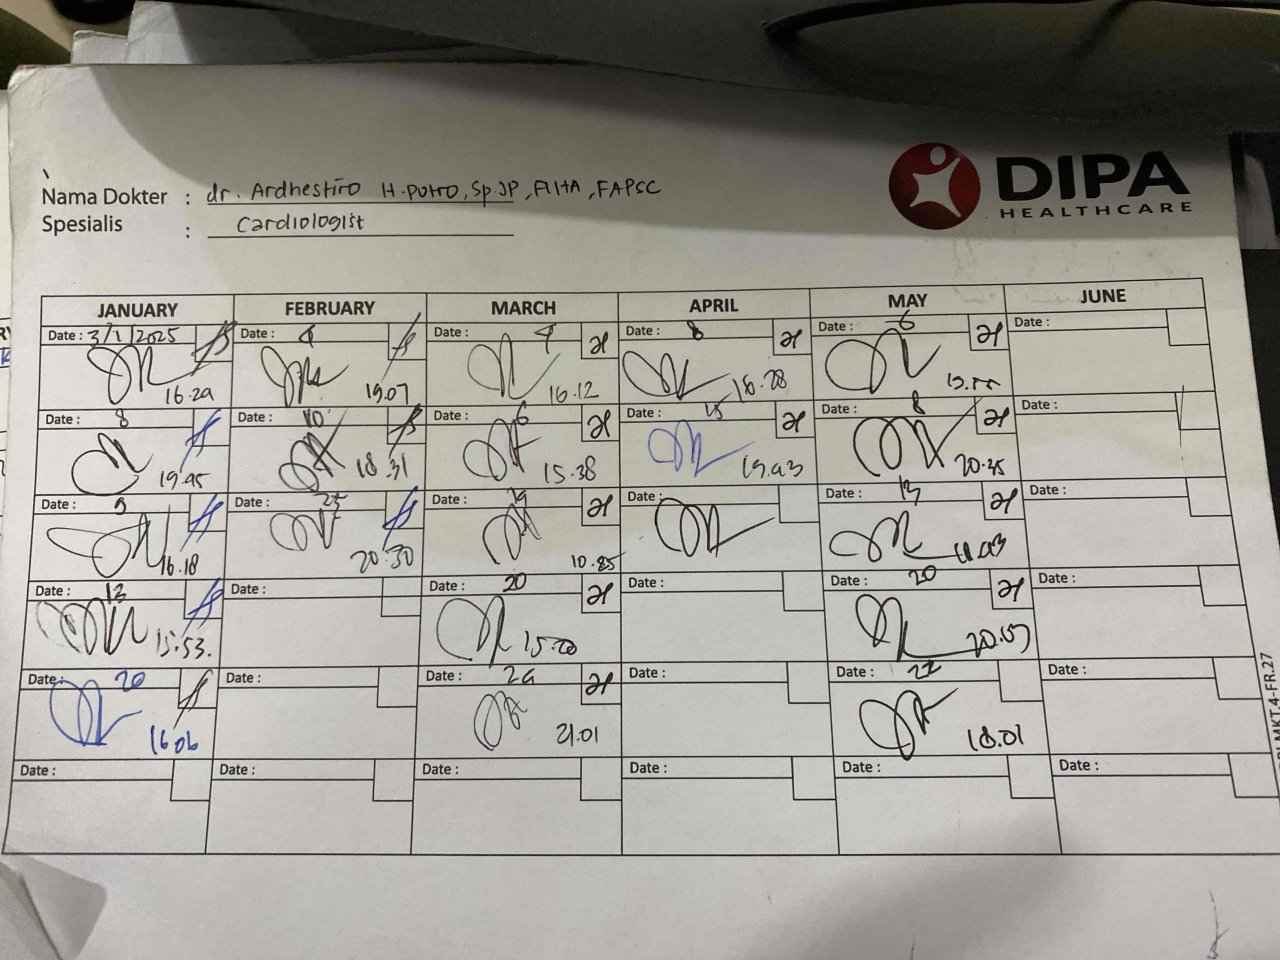 Nama Dokter : dr. Ardhestiro H. Putro, Sp.JP, FIHA, FAPSC
Spesialis : Cardiologist
DIPA
HEALTHCARE
JANUARY FEBRUARY MARCH APRIL MAY JUNE
Date : 3/1/2025 Date : 4 Date : 4 Date : 8 Date : 6 Date :
16.29 19.07 16.12 18.28
Date : 8 Date : 10 Date : 6 Date : 15 Date : 8 Date :
19.45 18.31 15.38 19.43 20.25
Date : 9 Date : 25 Date : Date : Date : 13 Date :
16.18 20.30
Date : 13 Date : Date : 20 Date : Date : 20 Date :
15.53. 15.20 20.07
Date : 20 Date : Date : 24 Date : Date : 22 Date :
16.06 21.01 18.01
Date : Date : Date : Date : Date : Date :
MKT.4-FR.27